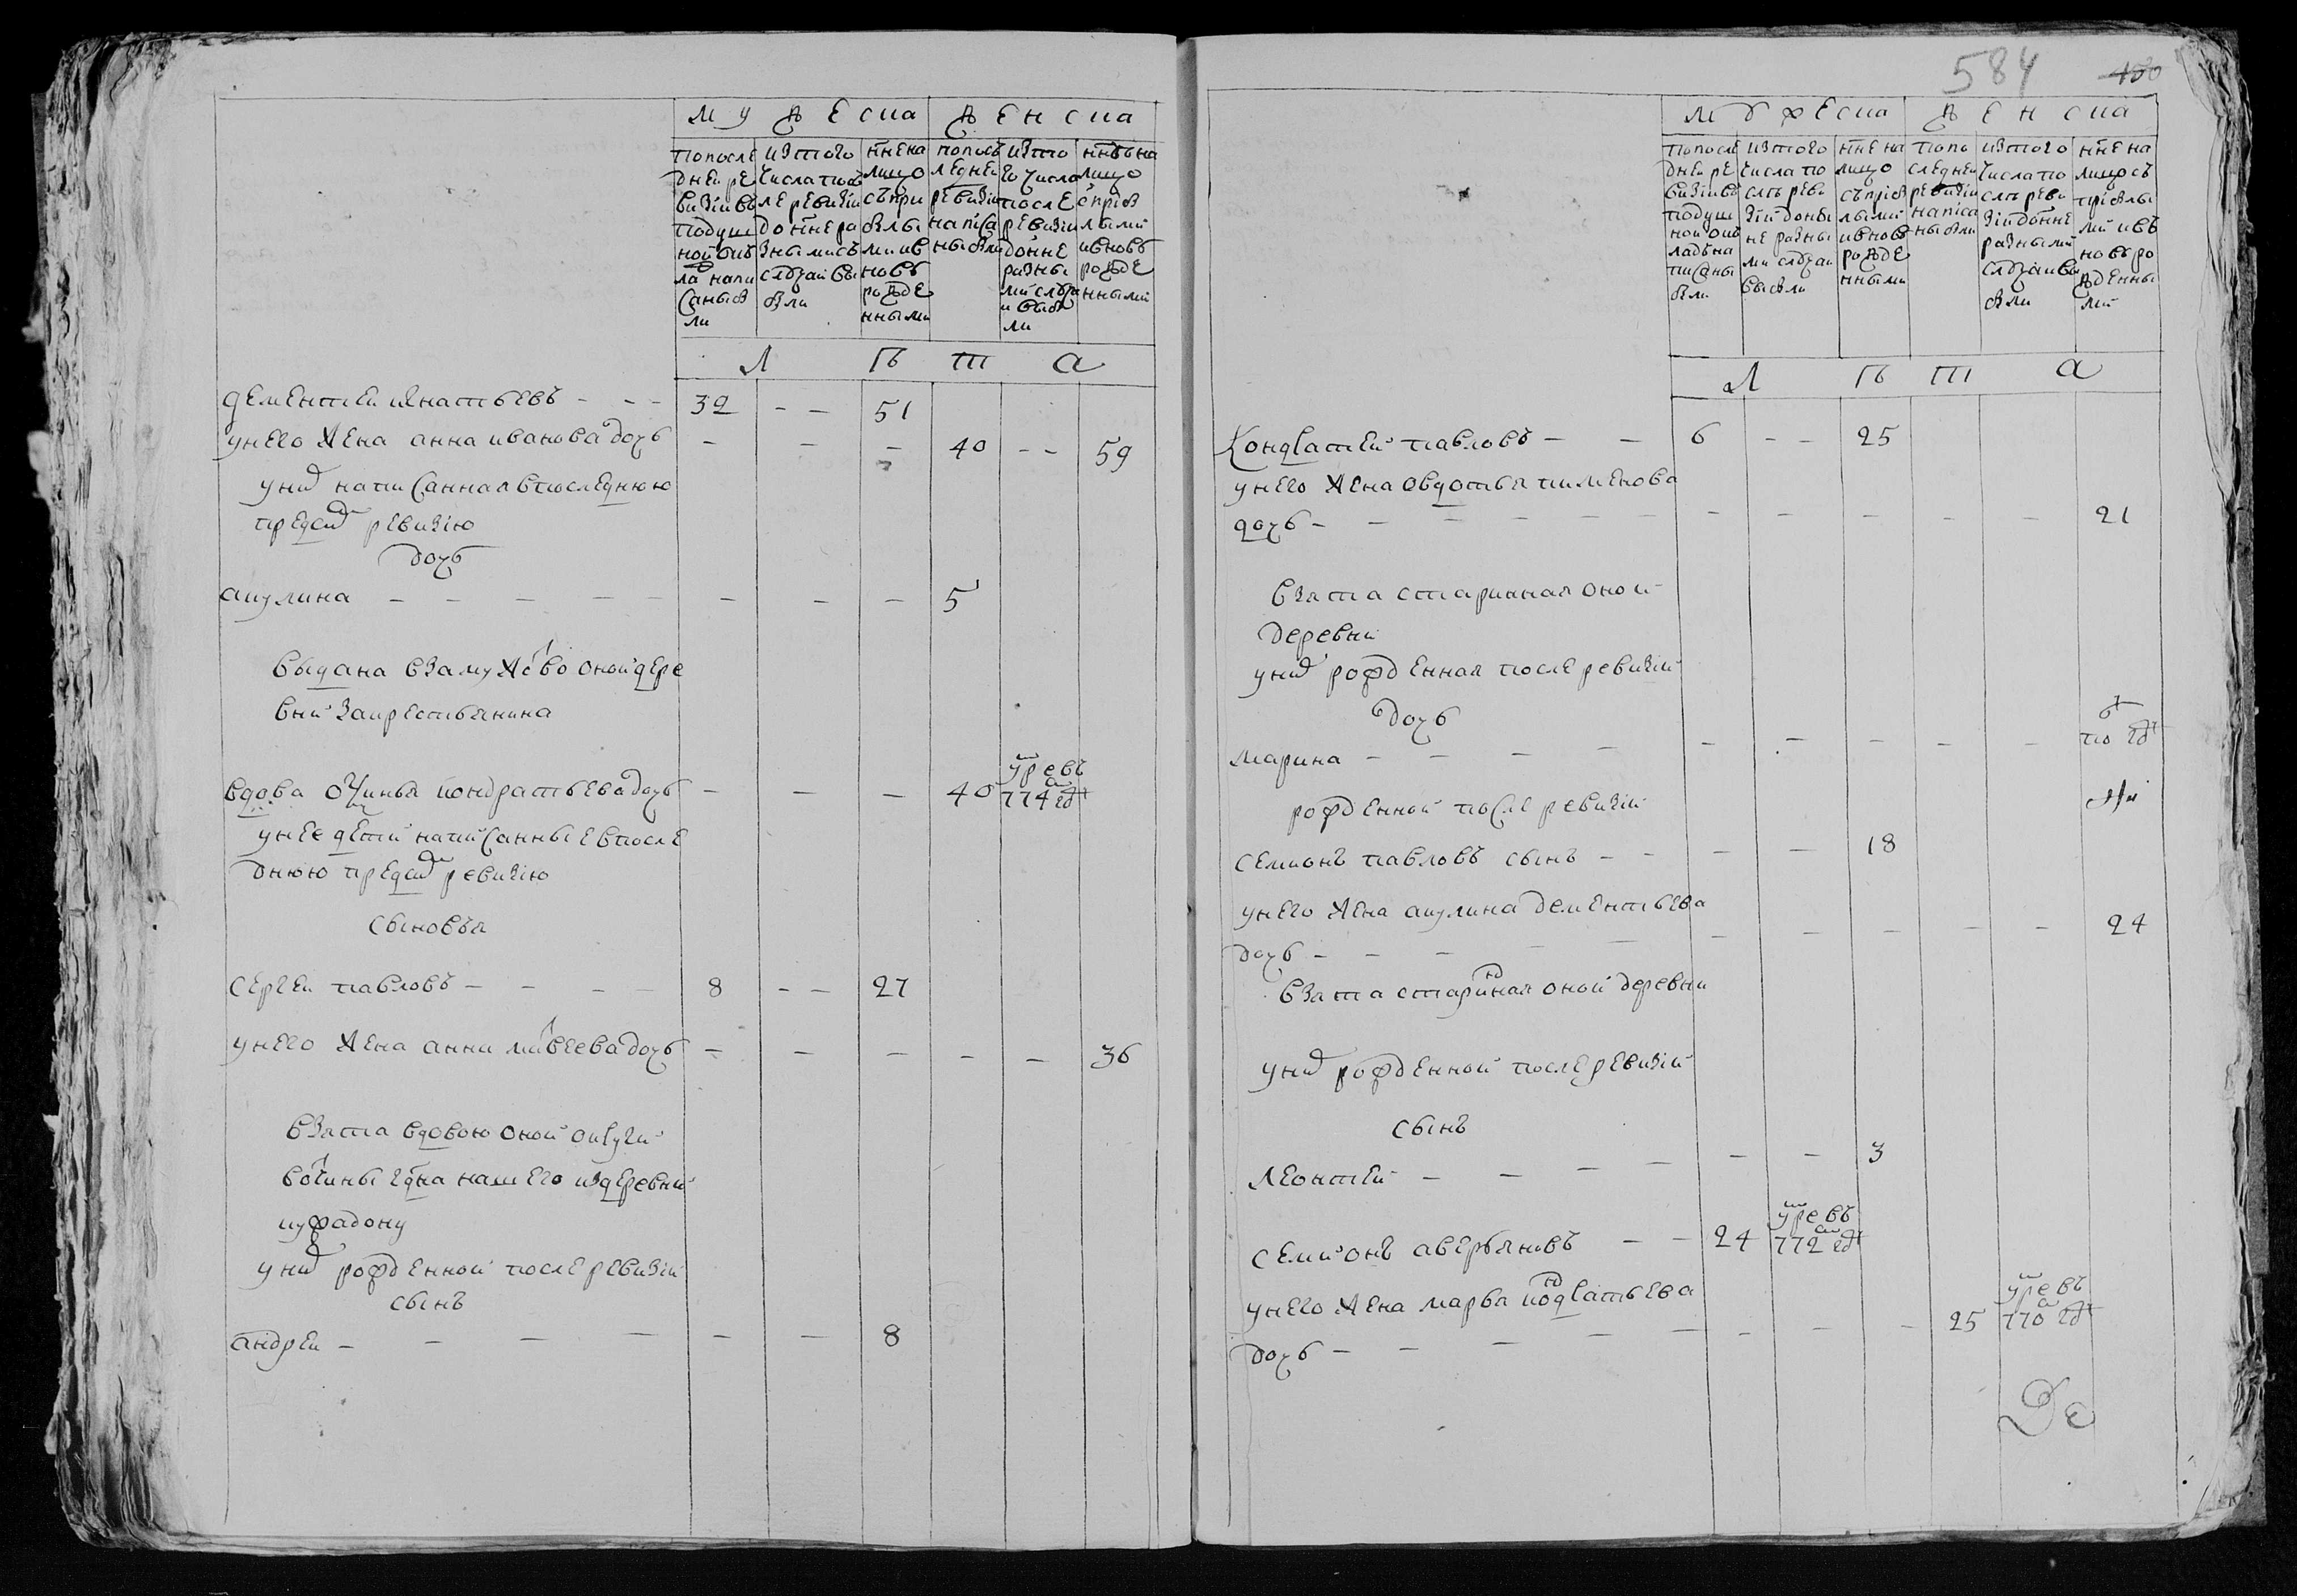 мужеска женска
по после
дней ре
визіи въ
подуш
ной окъ
ла напи
саны бы
ли
из того
числа пос
ле ревизіи
до нне ра
зными
случаи вы
были
нне на
лицо
съ при
былы
ми и в
новь
рожде
нными
по посл
едней
ревизіи
написа
ны были
из то
го числа
после
ревизіи
до нне
разны
ми случа
и выбы
ли
нне на
лицо
с приб
лыми
и вновь
рожде
нными
л ѣ т а
дементей игнатьевъ - - - 32 - - 51
у него жена анна иванова дочь - - - 40 - - 59
у ни написанная в последнюю
пред сей ревизию
дочь
акулина - - - - - - - - 5
выдана в замужство оной дере
вни за крестьянина
вдова кондратьева дочь - - - 40 умре въ 774 гд
у нее дети написанные в после
днюю пред сей ревизию
сыновья
сергеи павловъ - - - - 8 - - 27
у него жена анна матвеева дочь - - - - - 36
взята вдовою оной округи
вотчины гдна нашего из деревни
у ни рожденной после ревизіи
сынъ
андреи - - - - - - 8
584
450
мужеска женска
по после
дней ре
визіи въ
подуш
ной ок
ладъ на
писаны
были
из того
числа по
слѣ реви
зіи до ны
не разны
ми случаи
выбыли
нне на
лицо
съ приб
лыми
и вновь
рожде
нными
по по
следней
ревизіи
написа
ны были
из того
числа по
слѣ реви
зіи до нне
разными
случаи вы
были
нне на
лицо съ
прибылы
ми и въ
новь ро
жденны
ми
л ѣ т а
Кондратей павловъ - - 6 - - 25
у него жена овдотья пименова
дочь - - - - - - - - - - - 21
взята старинная оной
деревни
у ни рожденная после ревизіи
дочь
марина - - - - - - - - - по гд
рожденной после ревизіи
семионъ павловъ сынъ - - - - 18
у него жена акулина дементьева
дочь - - - - - - - - - - 24
взята старинная оной деревни
у ни рожденной после ревизіи
сынъ
леонтеи - - - - - - 3
семионъ аверьяновъ - - 24 умре въ 772 гд
у него жена марва кондратьева
дочь - - - - - - - - 25 умре въ 770 гд
Де